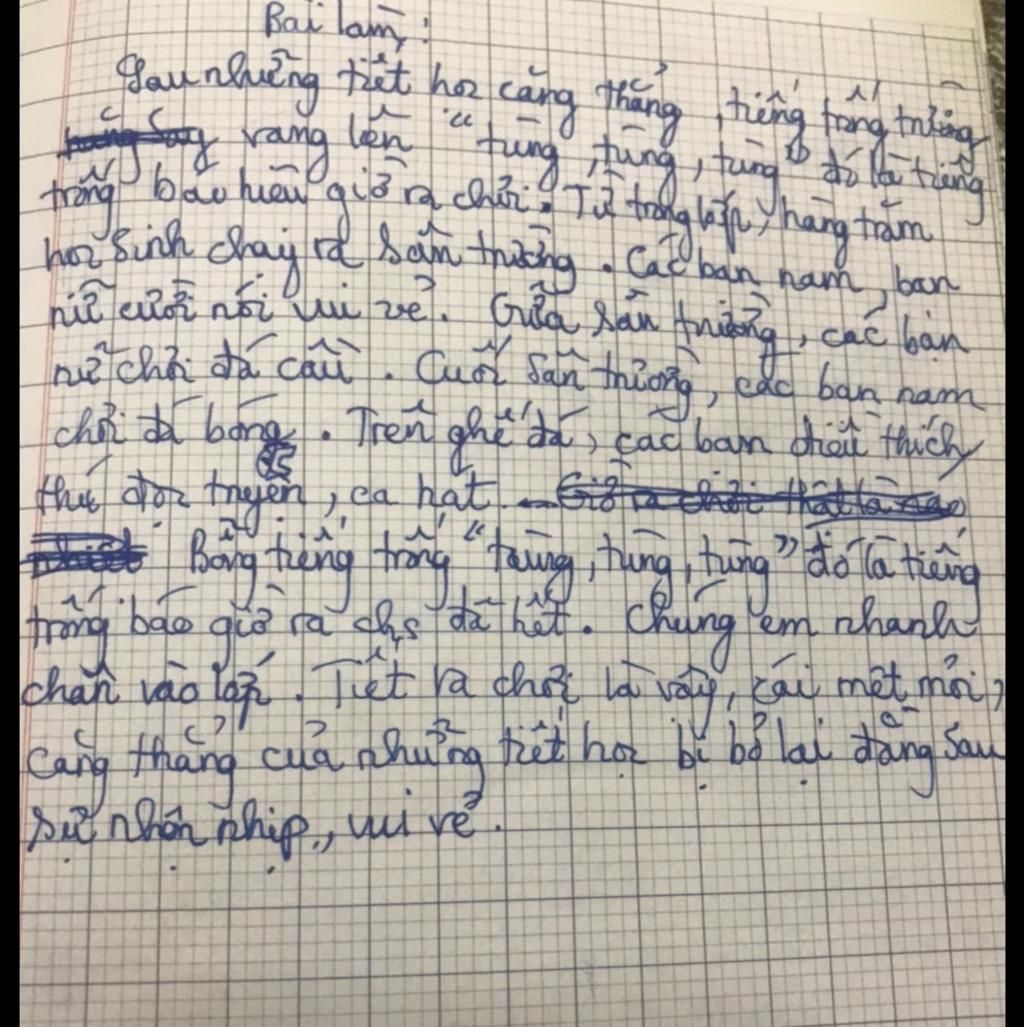 Bài làm:
Sau những tiết học căng thẳng, tiếng trống trường
vang lên "tùng, tùng, tùng" đó là tiếng
trống báo hiệu giờ ra chơi. Từ trong lớp, hàng trăm
học sinh chạy ra sân trường. Các bạn nam, bạn
nữ cười nói vui vẻ. Giữa sân trường, các bạn
nữ chơi đá cầu. Cuối sân trường, các bạn nam
chơi đá bóng. Trên ghế đá, các bạn thích
thú đọc truyện, ca hát.
Bỗng tiếng trống "tùng, tùng, tùng" đó là tiếng
trống báo giờ ra chơi đã hết. Chúng em nhanh
chân vào lớp. Tiết ra chơi là vậy, cái mệt mỏi,
căng thẳng của những tiết học bị bỏ lại đằng sau
sự nhộn nhịp, vui vẻ.